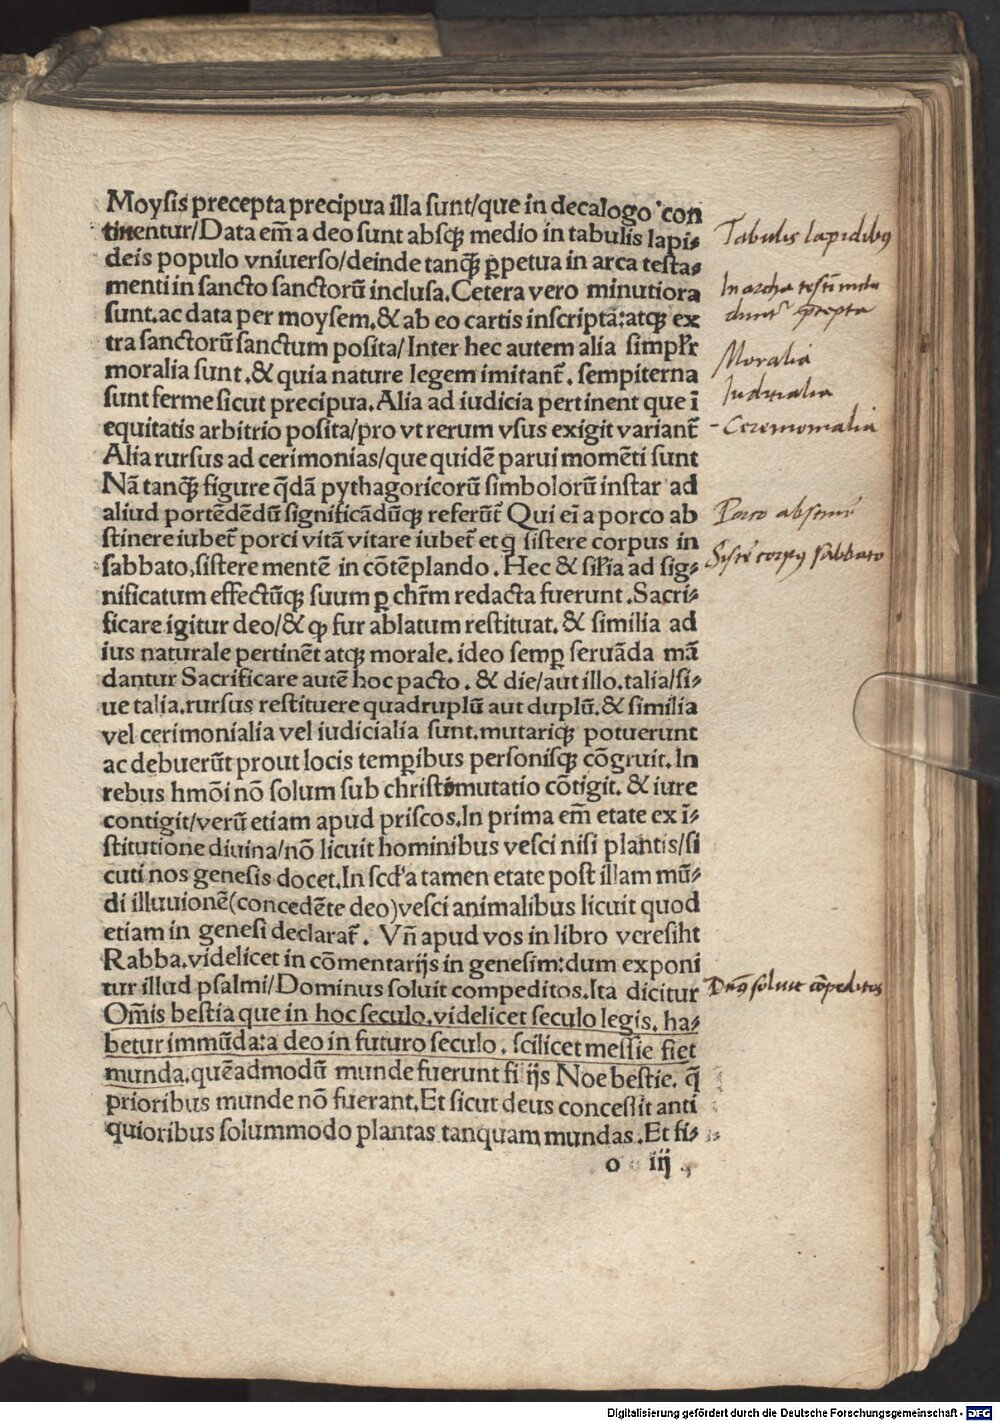 Moysis precepta precipua illa sunt/que in decalogo con
tinentur/Data em̃ a deo sunt absq̃ medio in tabulis lapi⸗
deis populo vniuerso/deinde tanq̃ ꝑpetua in arca testa⸗
menti in sancto sanctorũ inclusa.Cetera vero minutiora
sunt.ac data per moysem.& ab eo cartis inscripta:atqꝫ ex
tra sanctorũ sanctum posita/Inter hec autem alia simpl̃r
moralia sunt.& quia nature legem imitant᷑. sempiterna
sunt ferme sicut precipua.Alia ad iudicia pertinent que ĩ
equitatis arbitrio posita/pro vt rerum vsus exigit variant᷑
Alia rursus ad cerimonias/que quidẽ parui momẽti sunt
Nã tanq̃ figure q̃dã pythagoricorũ simbolorũ instar ad
aliud portẽdẽdũ significãdũqꝫ referũt᷑ Qui ei᷑ a porco ab
stinere iubet᷑ porci vitã vitare iubet᷑ et q̃ sistere corpus in
sabbato,sistere mentẽ in cõtẽplando.Hec & sil̃ia ad sig⸗
nificatum effectũqꝫ suum ꝑ chr̃m redacta fuerunt.Sacri⸗
ficare igitur deo/& ꝙ fur ablatum restituat.& similia ad
ius naturale pertinẽt atqꝫ morale.ideo semꝑ seruãda mã
dantur Sacrificare autẽ hoc pacto.& die/aut illo.talia/si⸗
ue talia.rursus restituere quadruplũ aut duplũ.& similia
vel cerimonialia vel iudicialia sunt.mutariqꝫ potuerunt
ac debuerũt prout locis temꝑibus personisqꝫ cõgruit.In
rebus hmõi nõ solum sub christo mutatio cõtigit.& iure
contigit/verũ etiam apud priscos.In prima em̃ etate ex ĩ⸗
stitutione diuina/nõ licuit hominibus vesci nisi plantis/si
cuti nos genesis docet.In scd'a tamen etate post illam mũ⸗
di illuuionẽ(concedẽte deo)vesci animalibus licuit quod
etiam in genesi declarat᷑. Vñ apud vos in libro veresiht
Rabba.videlicet in cõmentarijs in genesim:dum exponi
tur illud psalmi/Dominus soluit compeditos.Ita dicitur
Om̃is bestia que in hoc seculo.videlicet seculo legis.ha⸗
betur immũda:a deo in futuro seculo.scilicet messie fiet
munda.quẽadmodũ munde fuerunt fi ijs Noe bestie.q̃
prioribus munde nõ fuerant.Et sicut deus concessit anti
quioribus solummodo plantas tanquam mundas.Et fi⸗
o iij
Tabulis lapidibus
In archa
Moralia
Iuditialia
Ceremonialia
Porco
Siste corpus sabbato
Dns soluit cõpeditos
Digitalisierung gefördert durch die Deutsche Forschungsgemeinschaft - DFG